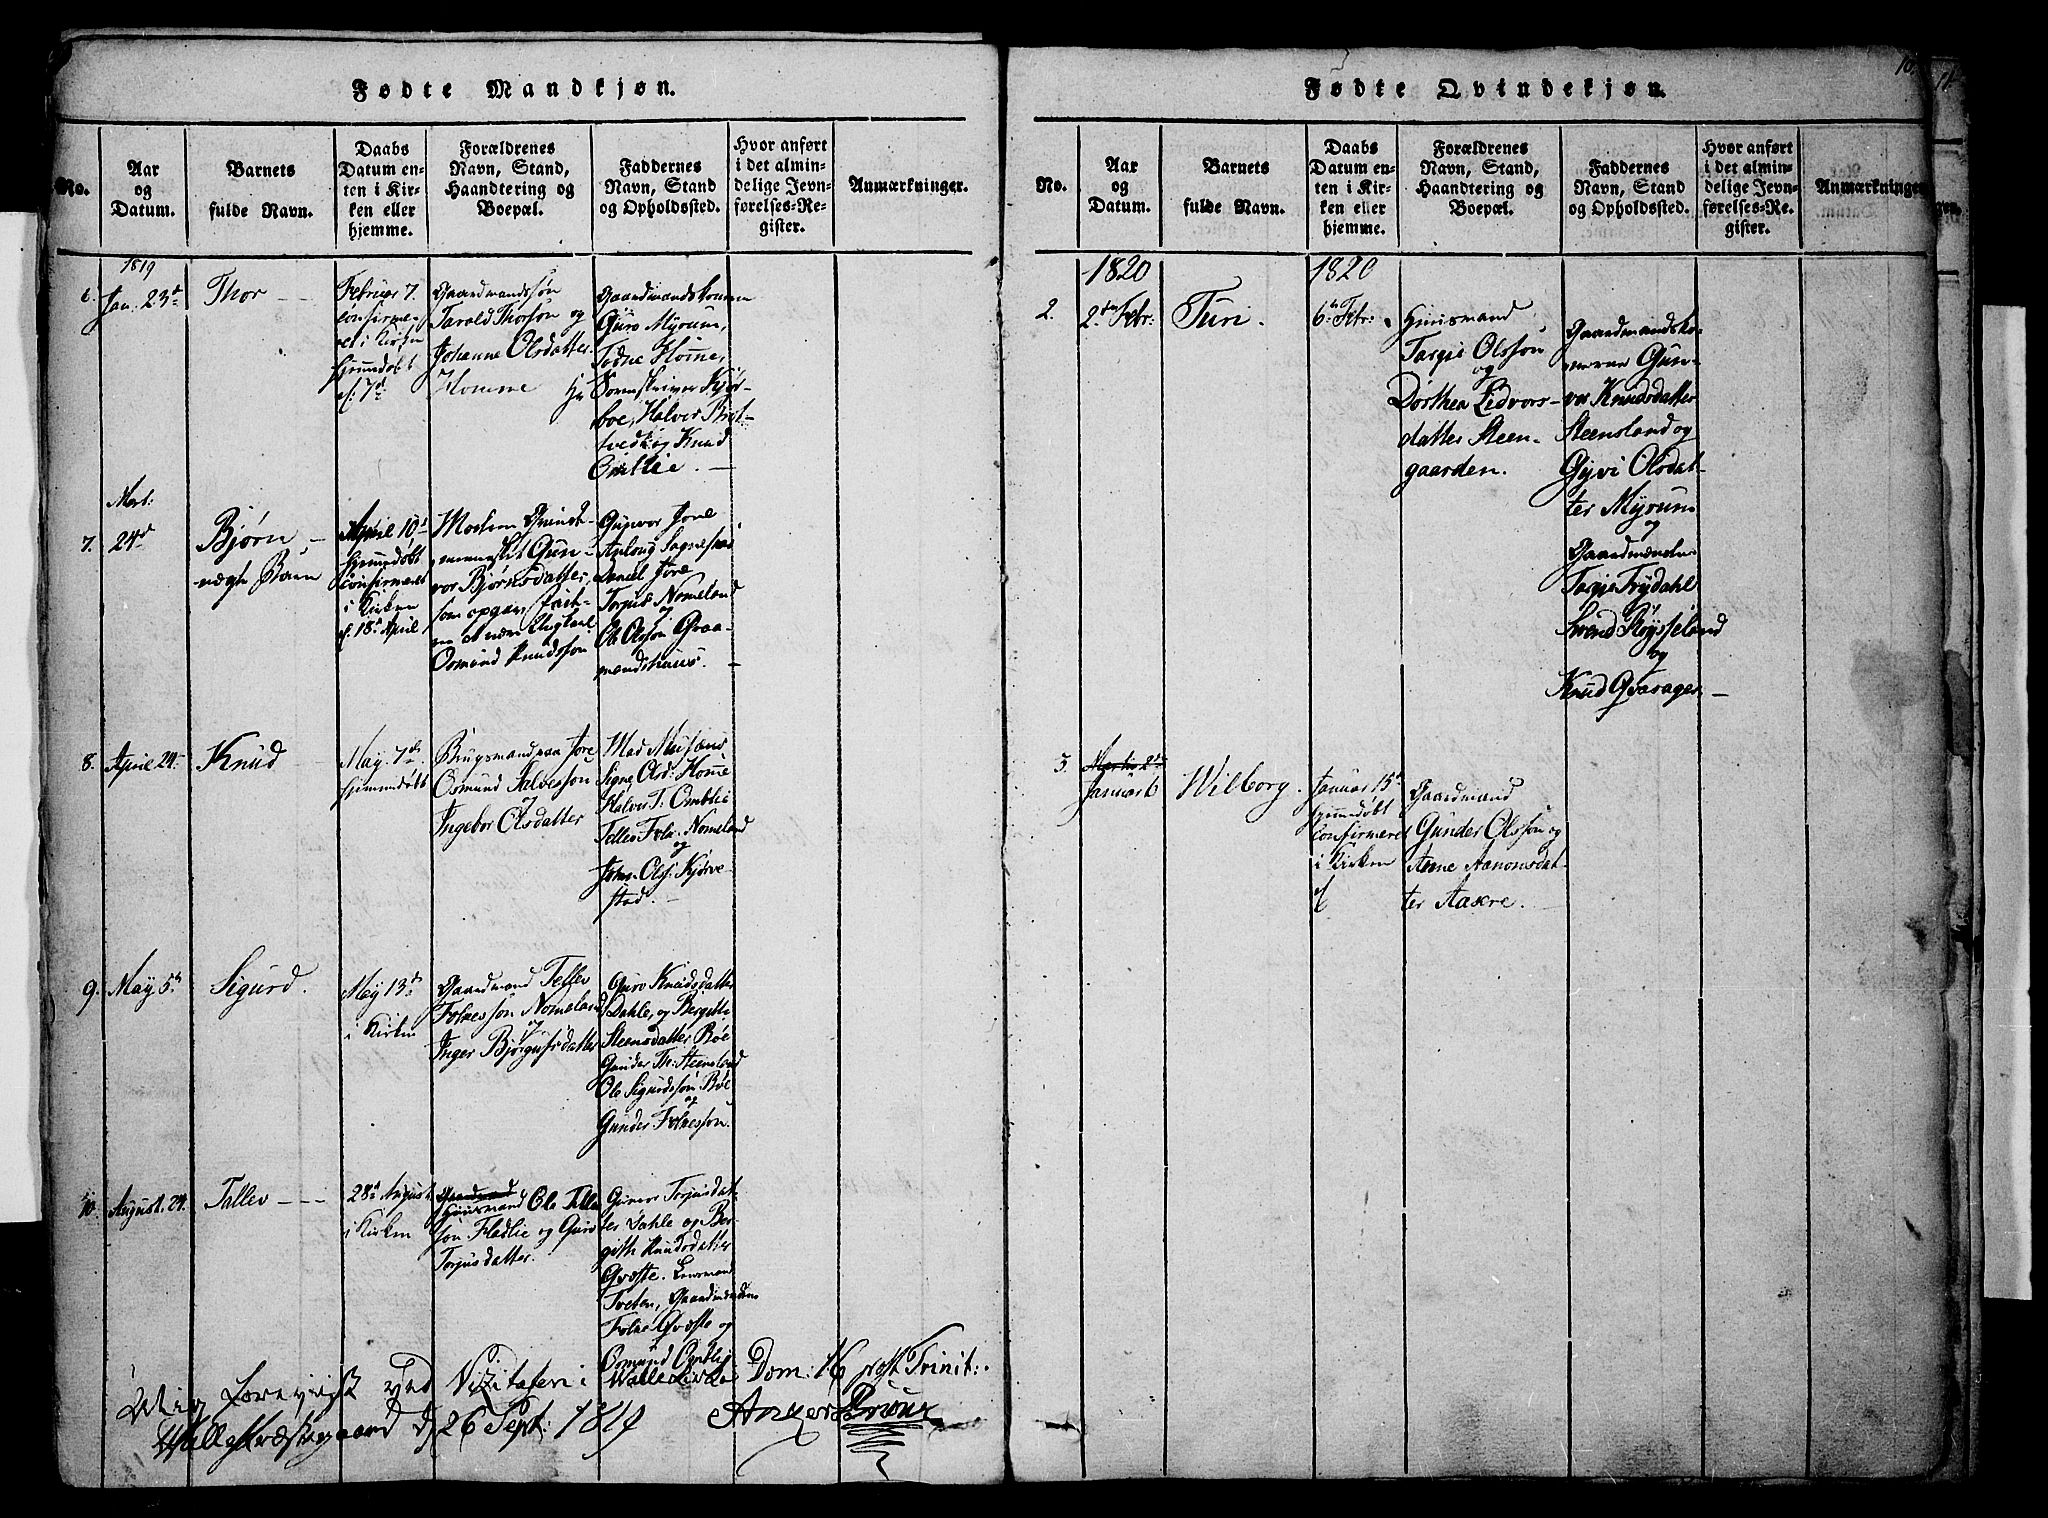 Fødte Mandkjøn.
No.
Aar
og
Datum.
Barnets
fulde Navn.
Daabs
Datum en-
ten i Kir-
ken eller
hjemme.
Forældrenes
Navn, Stand,
Haandtering og
Boepæl.
Faddernes
Navn, Stand
og Opholdssted.
Hvor anført
i det almin-
delige Jevn-
førelses-Re-
gister.
Anmærkninger.
1819
6.
Jan. 23d
Thor
Februar 7.
confirme-
ret i Kirken
hjemmedøbt
d. 7d
Gaardmandssøn
Tarald Thorsøn og
Johanne Olsdatter
Homme
Gaardmandskonen
Guro Myrum,
Todne Homme,
Hr Sorenskriver Kjør-
boe, Halvor
og Knud
Omblie.
Mart:
7.
24d
Bjørn
uægte Barn
April 10d
hjemmedøbt
confirmeret
i Kirken
d. 18d April
Gun-
vor Bjørnsdatter,
som opgav
Osmund Knudsson
Gunvor Jore
Daniel Jore
Torjus Nomeland
og
Ole Olsson Graa-
mandshuus.
8.
April 24.
Knud
May 7de
hjemmedøbt
Brugsmand paa Jore
Osmund Salvesson
og
Ingebor Olsdatter
Mad
Signe Olsd: Homme
Halvor T. Omblie
Tellev Folk. Nomeland
og
John Ols: Kjørve-
stad.
9.
May 5te
Sigurd.
May 13de
i Kirken
Gaardmand Tellev
Folkesson Nomeland
og
Inger Bjørgufsdatter
Guro Knudsdatter
Dahle, og Bergitte
Steensdatter Bøe
Gunder Th: Steensland
Ole Sigurdsøn Bøe
og
Gunder Folkesson.
10.
August 24.
Tallev
28d August
i Kirken
Gaardmand
Huusmand Ole Telle
søn Fladlie og Guro
Torjusdatter.
Gunvor Torjusdat-
ter Dahle og Ber-
gith Knudsdatter
Qvaste. Lensmand
Tveten, Gaardmændene
Folke Qvaste og
Osmund Omblie
Mig foreviist ved Visitasen i Walle Kirke Dom: 16 post Trinit:.
Walle Præstegaard d. 26 Sept: 1819
Fødte Qvindekjøn.
10.
11
No.
Aar
og
Datum.
Barnets
fulde Navn.
Daabs
Datum en-
ten i Kir-
ken eller
hjemme.
Forældrenes
Navn, Stand,
Haandtering og
Boepæl.
Faddernes
Navn, Stand
og Opholdssted.
Hvor anført
i det almin-
delige Jevn-
førelses-Re-
gister.
Anmærkninger
1820
1820
2.
2den Febr:
Turi.
6te Febr:
Huusmand
Targie Olsson
og
Dorthea Eidvors-
datter Steen-
gaarden.
Gaardmandsko-
nerne Gun-
vor Knudsdatter
Steensland og
Gyvi Olsdat-
ter Myrum
og
Gaardmændene
Targie Frydahl
Svend Røysseland
og
Knud Qvarager
3.
Martii 2de
Januar 6
Wilborg.
Januar 15d
hjemmedøbt
confirmeret
i Kirken
d
Gaardmand
Gunder Olsson og
Anne Aanonsdat-
ter Aakre.